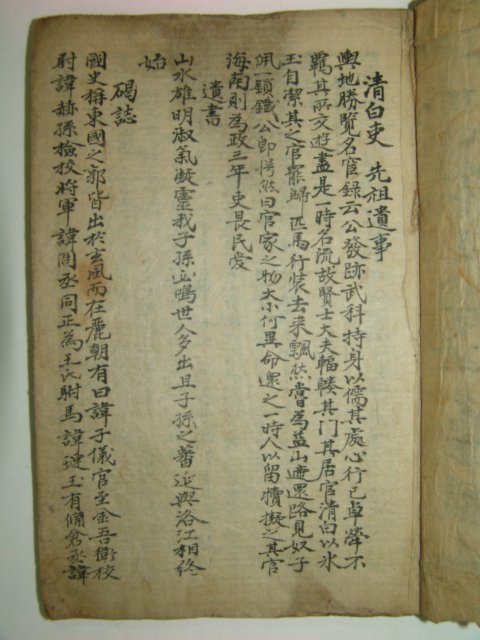 清白吏 先祖遺事
輿地勝覽名宦錄云公發跡武科持身以儒其處心行己卓犖不
羈其所交遊盡是一時名流故賢士大夫輻輳其門其居官清白以氷
玉自潔其之官罷歸一匹馬行裝去来飄然嘗為益山遞還路見奴子
佩一鎖鐵公卽愕然曰官家之物大小何異命還之一時人以留犢擬之其官
海南則為政三年吏畏民愛
遺書
山水雄明淑氣凝靈我子孫必鳴世人多出且子孫之蕃延與洛江相終
始
碣誌
國史稱東國之郭皆出於玄風而在麗朝有曰諱子儀官至金吾衛校
尉諱赫孫檢校將軍諱同丞同正為王氏駙馬諱璉玉有備倉丞諱